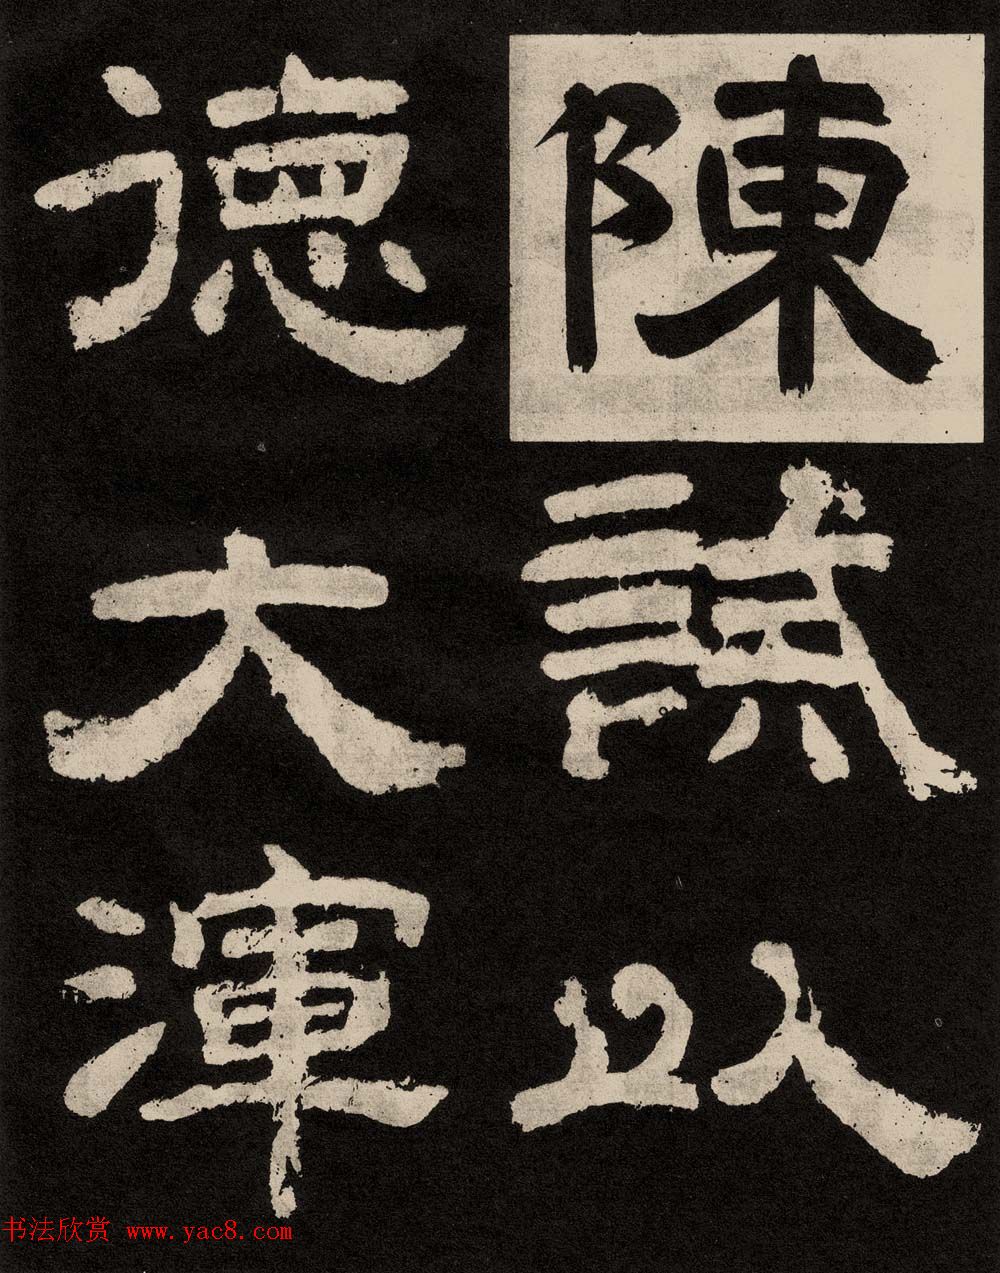 陳 以
德大渾
书法欣赏 www.yac8.com